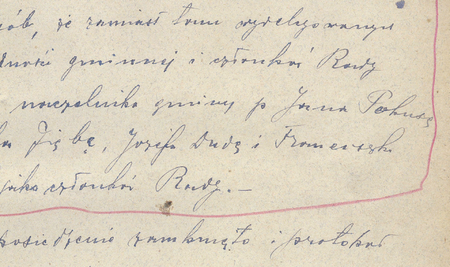 sób, że zamiast temu wydelegowanym
ność gminnej i członków Rady
naczelnika gminy p Jana Pokusę
Ziębę, Józefa Dudę i Franciszka
członków Rady. —
posiedzenie zamknięto i protokół